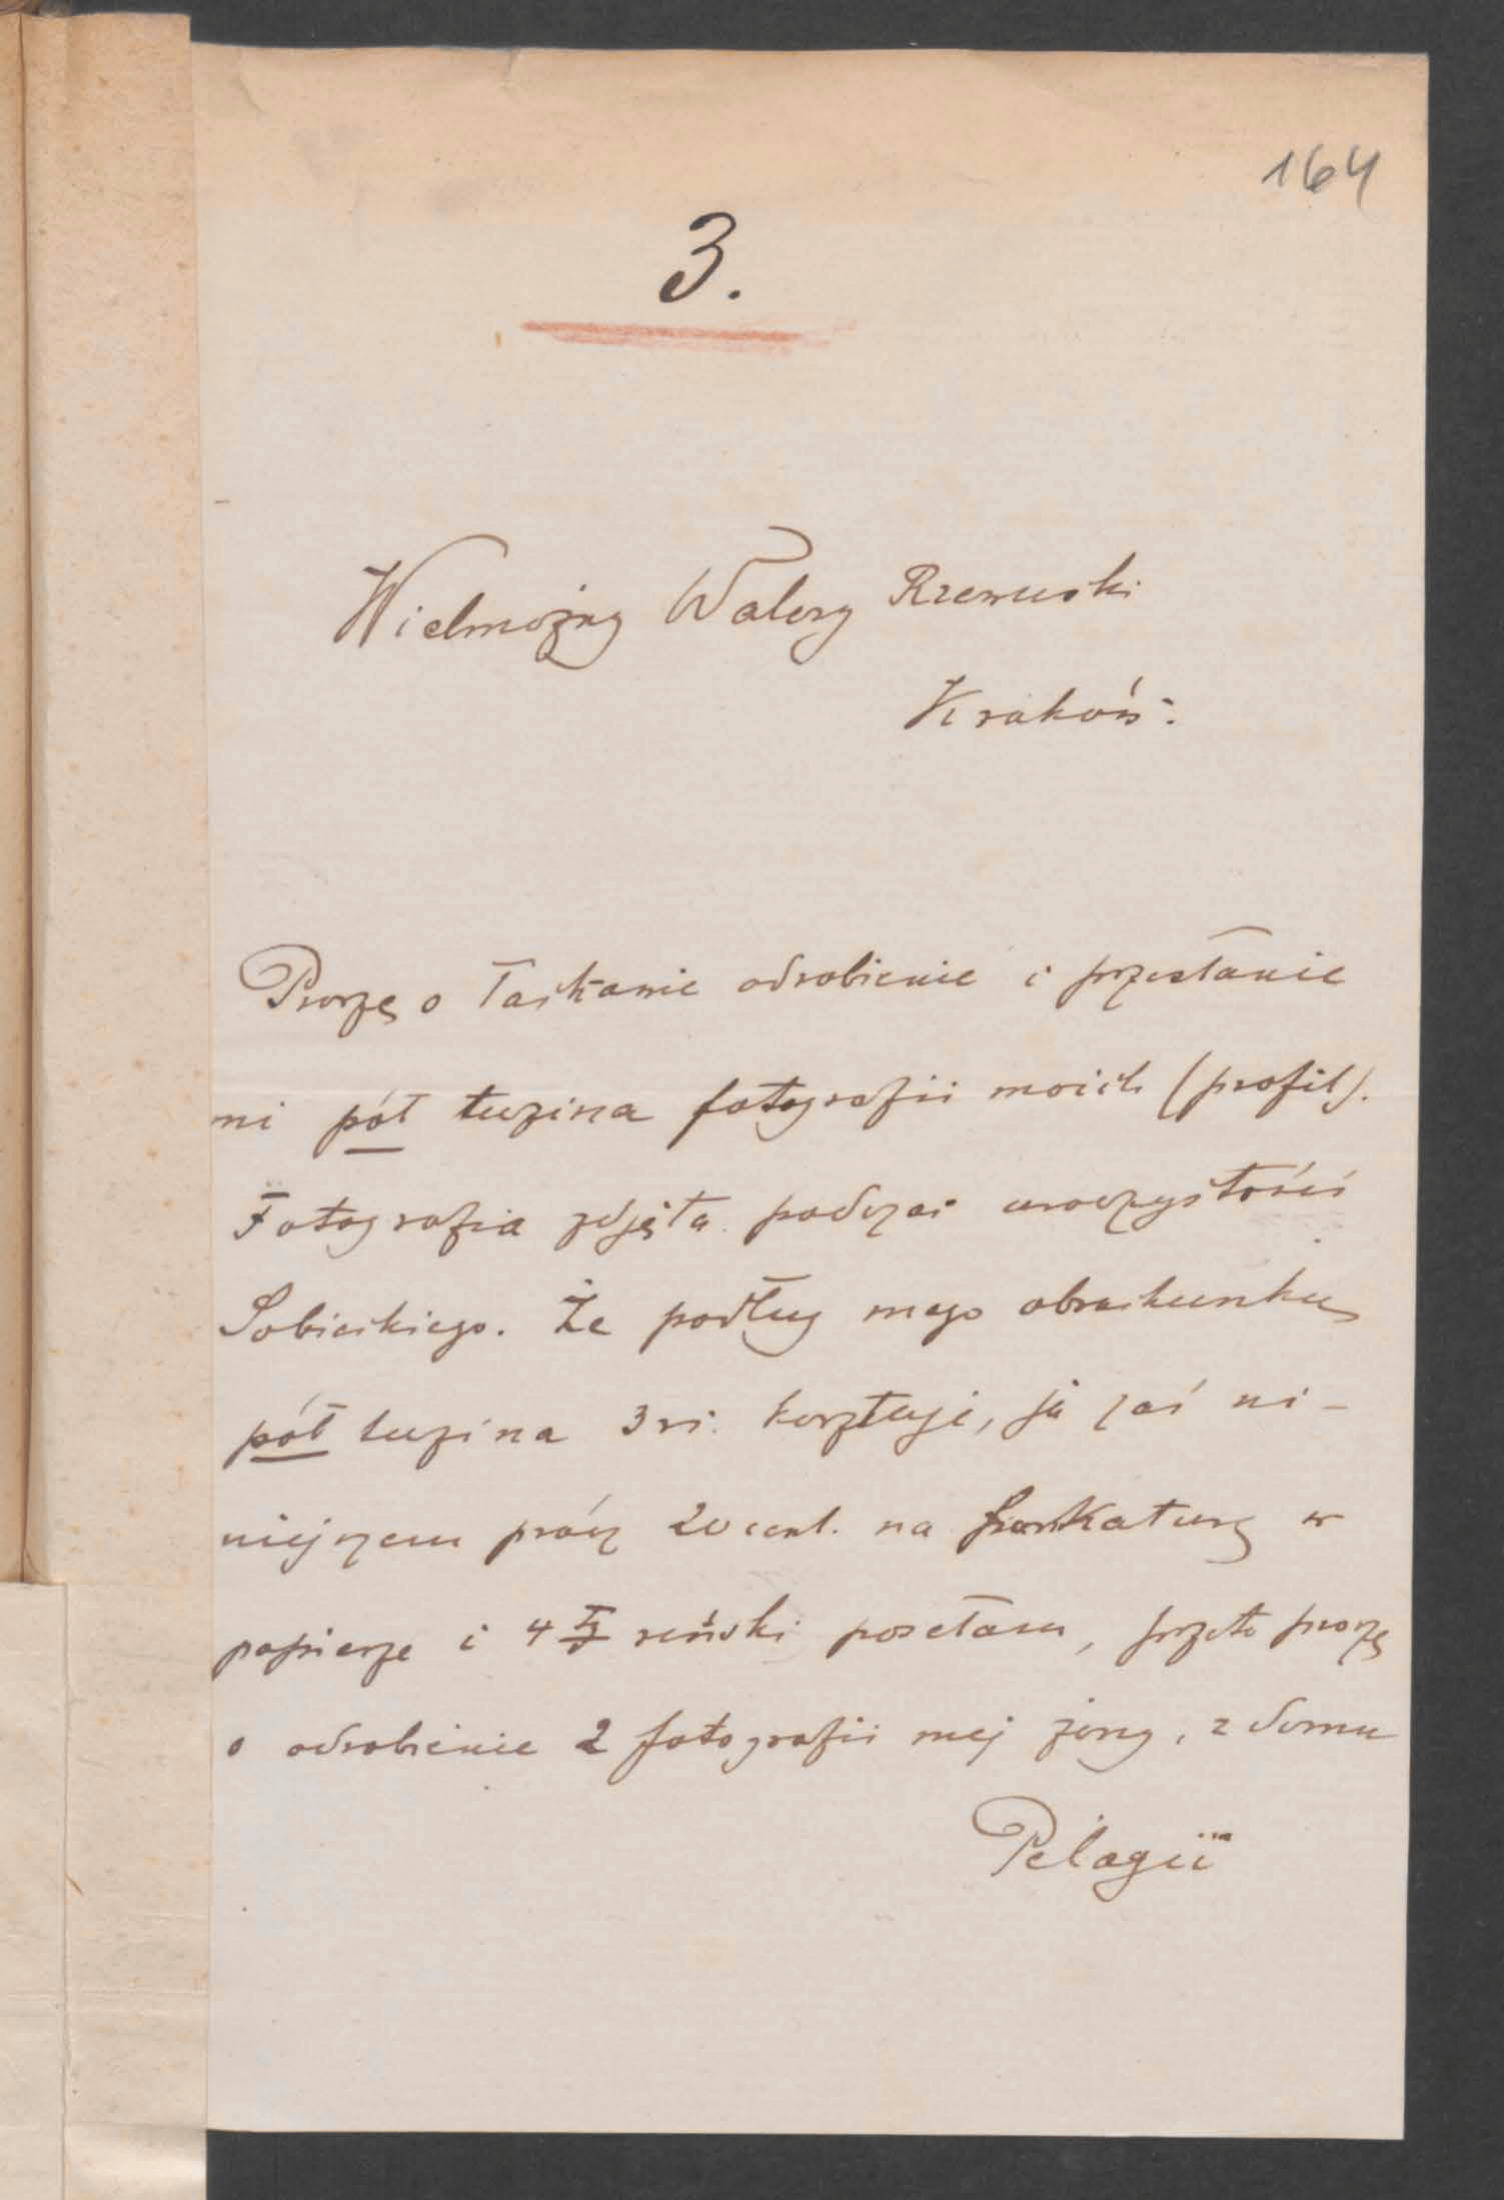 164
3.
Wielmożny Walery Rzewuski
Kraków.
Proszę o łaskawie odrobienie i przesłanie
mi pół tuzina fotografii moich (profil).
Fotografia zdjęta podczas uroczystości
Sobieskiego. Że podług mego obrachunku
pół tuzina 3 rs. kosztuje, ja zaś ni-
niejszem prócz 20 cent. na frankaturę w
papierze i 4 reński posełam, przeto proszę
o odrobienie 2 fotografii mej żony, z domu
Pelagii